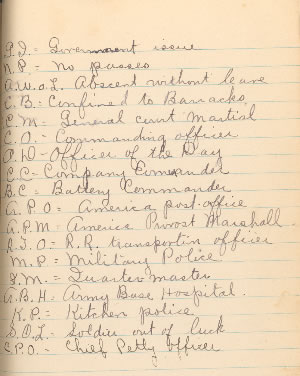 G.I. = Government issue
N.P. - no passes
A.W.O.L. Absent without leave
C.B. = Confined to Barracks
C.M. = General court Martial
C.O. - Commanding officer
O.D. - Officer of the Day
C.C. - Company Comander
B.C = Battery Commander
A.P.O = America post-office
A.P.M = America Provost Marshall.
R.T.O = R.R. transportin officer
M.P = Military Police
Q.M. = Quartermaster
A.B.H = Army Base Hospital.
K.P. = Kitchen police
S.O.L = Soldier out of luck
C.P.O. - Chief Petty officer